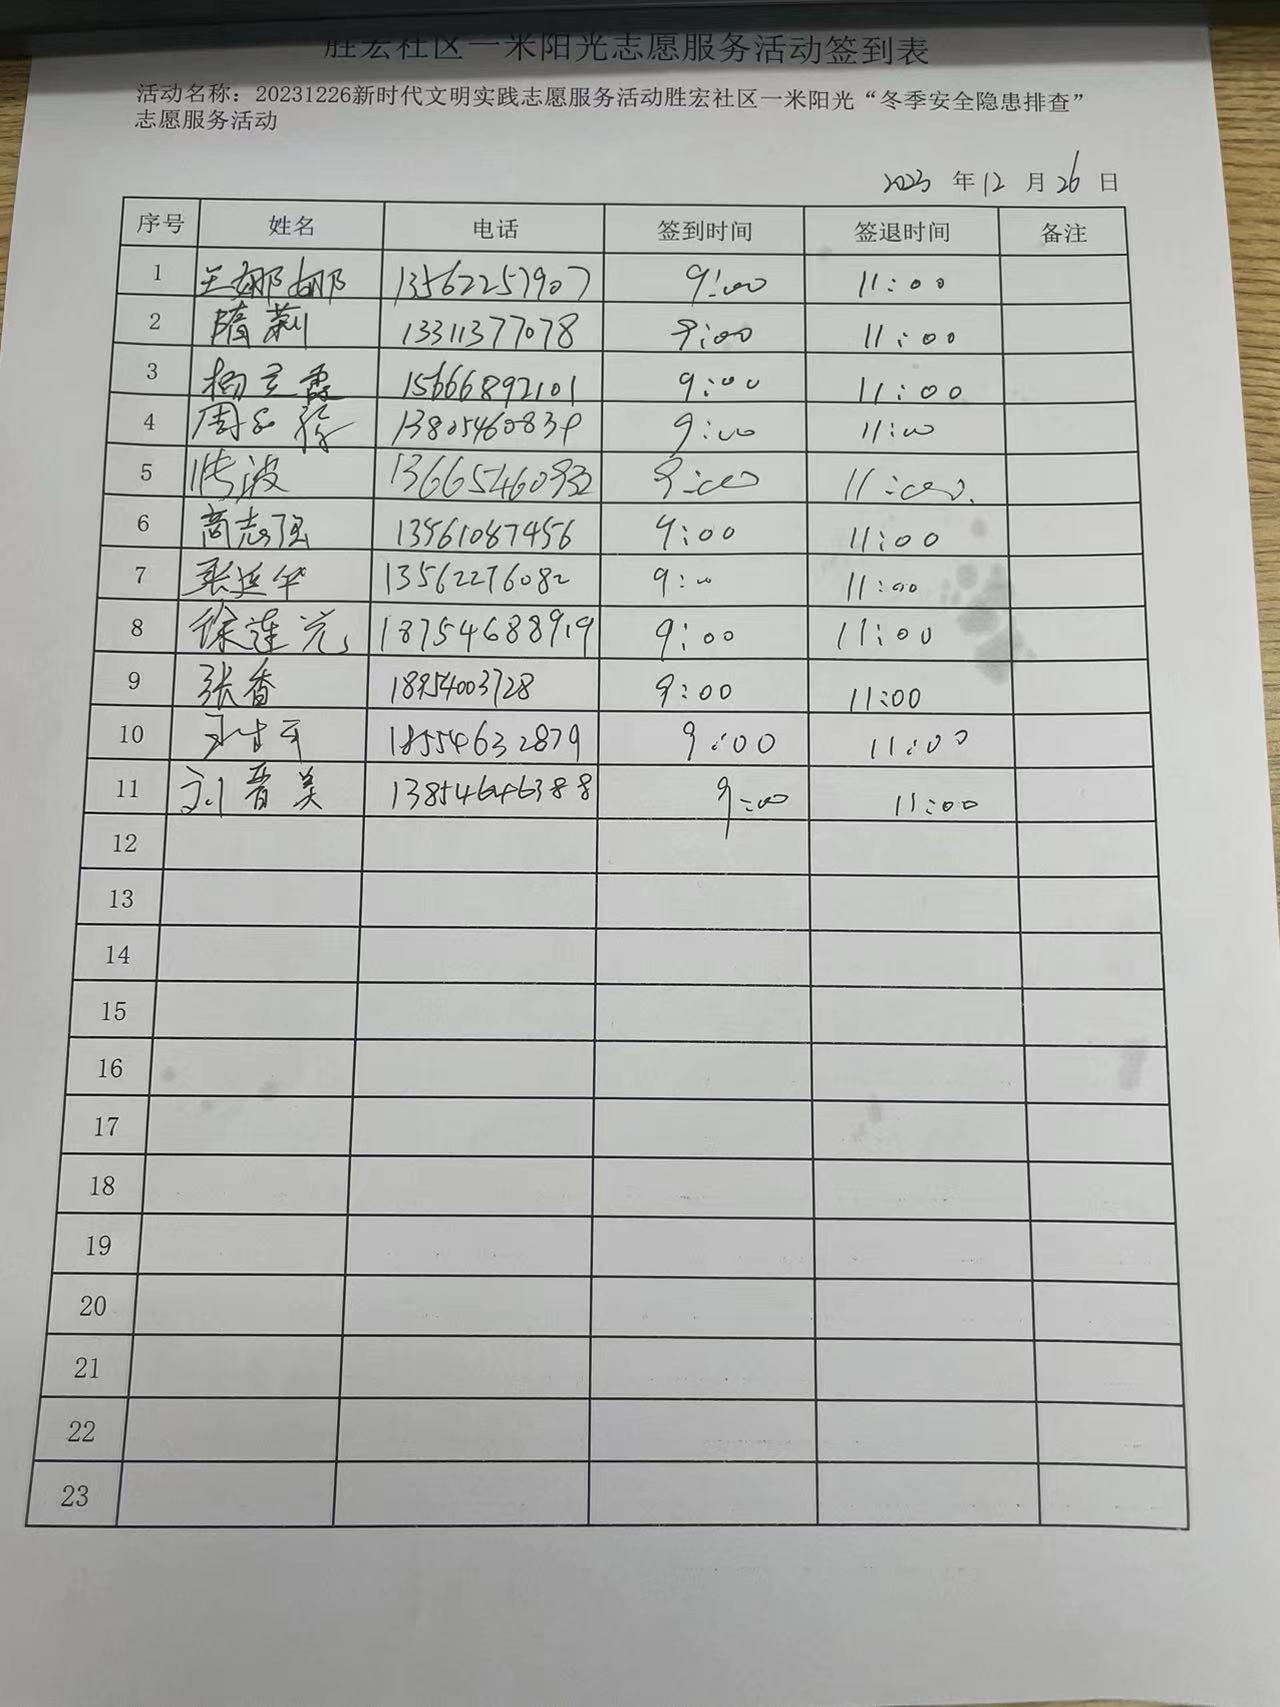 胜宏社区一米阳光志愿服务活动签到表
活动名称：20231226新时代文明实践志愿服务活动胜宏社区一米阳光“冬季安全隐患排查”
志愿服务活动
2023 年 12 月 26 日
序号 姓名 电话 签到时间 签退时间 备注
1 王娜娜 13562257907 9:00 11:00
2 隋莉 13311377078 9:00 11:00
3 杨立霞 15666892101 9:00 11:00
4 周 13805460839 9:00 11:00
5 波 13665460932 9:00 11:00
6 商志强 13561087456 9:00 11:00
7 张延华 13562276082 9:00 11:00
8 徐莲 18754688919 9:00 11:00
9 张香 18954003728 9:00 11:00
10 18554632879 9:00 11:00
11 刘晋美 13854646388 9:00 11:00
12
13
14
15
16
17
18
19
20
21
22
23